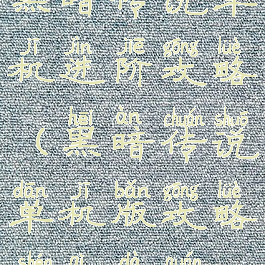 黑暗传说单
jī jìn jiē gōng lüè
机进阶攻略
hēi àn chuán shuō
（黑暗传说
dān jī bǎn gōng lüè
单机版攻略